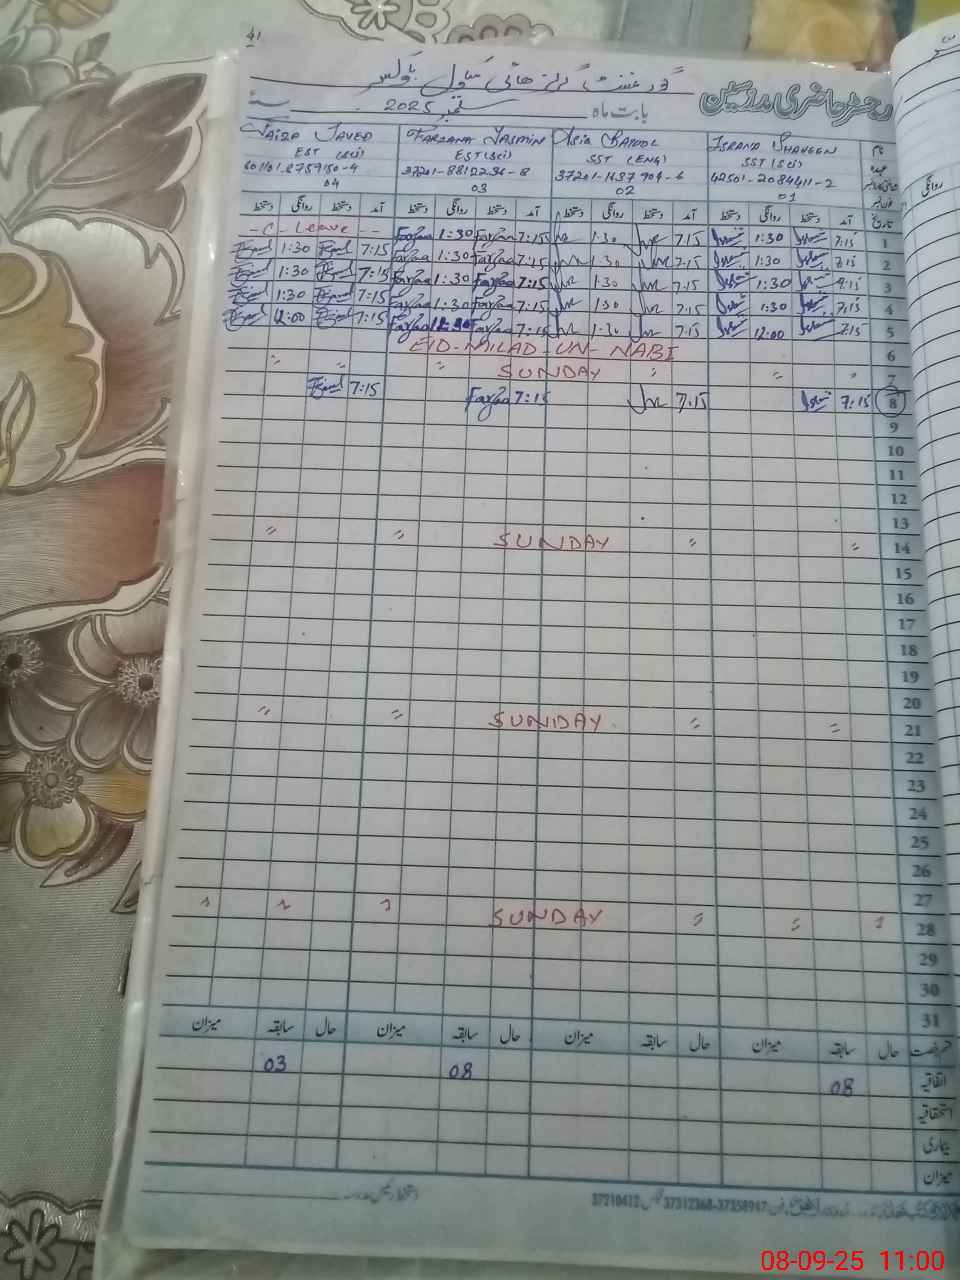 41
گورنمنٹ گرلز ہائی سکول
رجسٹر حاضری مدرسین
بابت ماہ ستمبر 2025
نام ISRAND SHAHEEN ASIA BATOOL FARZANA YASMIN FAIZA JAVED
عہدہ SST (Sci) SST (ENG) EST (Sci) EST (Sci)
42501-2084411-2 37201-1437904-6 37201-8812236-8
01 02 03 04
تاریخ آمد دستخط روانگی دستخط آمد دستخط روانگی دستخط آمد دستخط روانگی دستخط آمد دستخط روانگی دستخط
1 7:15 1:30 7:15 1:30 Farzana 7:15 Farzana 1:30 - C - Leave - -
2 7:15 1:30 7:15 1:30 Farzana 7:15 Farzana 1:30 7:15 1:30
3 7:15 1:30 7:15 1:30 Farzana 7:15 Farzana 1:30 7:15 1:30
4 7:15 1:30 7:15 1:30 Farzana 7:15 Farzana 1:30 7:15 1:30
5 7:15 12:00 7:15 Farzana 7:15 Farzana 7:15 12:00
6 EID-MILAD-UN-NABI
7 " " SUNDAY " " "
8 7:15 7:15 Farzana 7:15 7:15
9
10
11
12
13
14 " " SUNDAY " "
15
16
17
18
19
20
21 " " SUNDAY " "
22
23
24
25
26
27
28 " " " SUNDAY " " "
29
30
31
قسم رخصت حال سابقہ میزان حال سابقہ میزان حال سابقہ میزان حال سابقہ میزان
اتفاقیہ 08 08 03
استحقاقیہ
بیماری
میزان
37210412 37312368-37358947
08-09-25 11:00